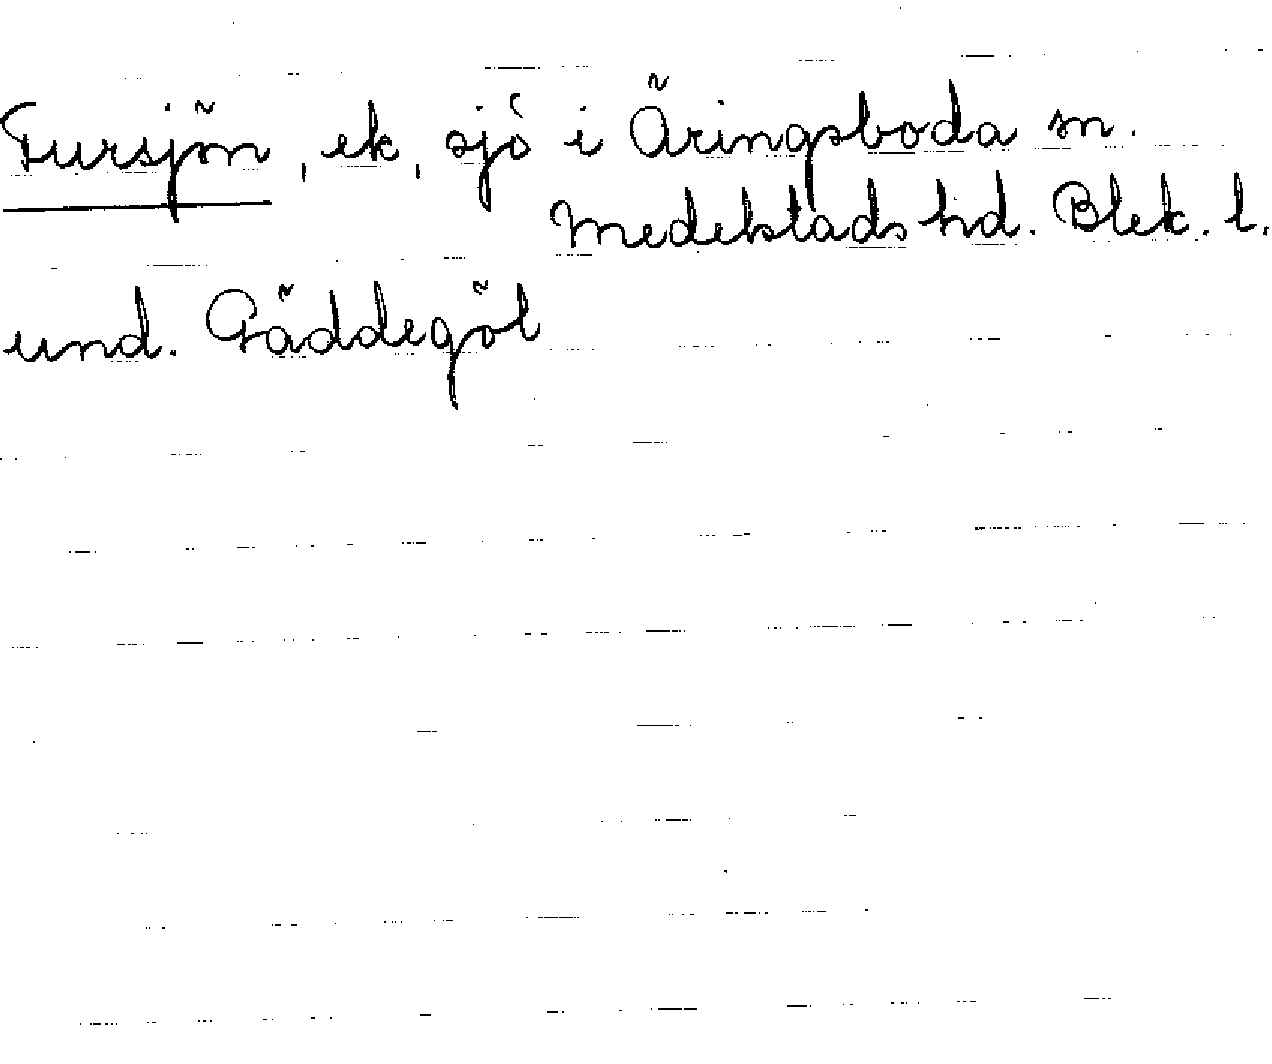 Fursjön, ek, sjö i Äringsboda sn.
Medelstads hd. Blek. l.
und. Gäddegöl